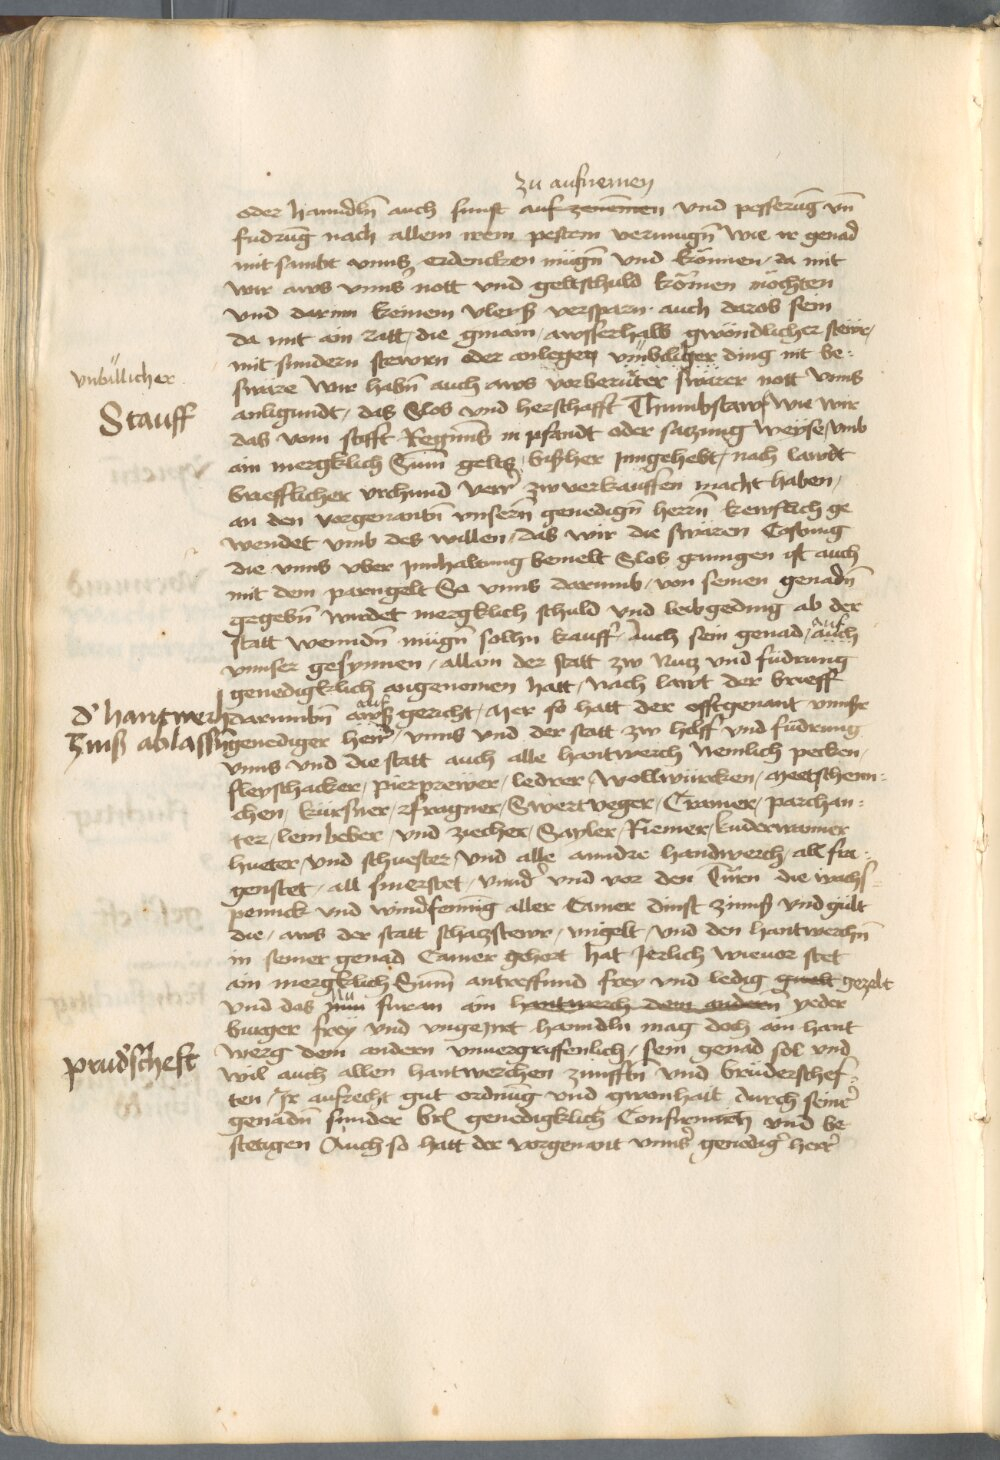 zu aufnemen
oder hanndln auch sunst auf zenemen und pesserung vn
fudrung nach allem irem pestem vermugn wie ir genad
mit sambt unns erdencken mügn und können, da mit
wir aws unns nott und geltschuld kömen möchten
und darinn keinem vleys versparn. auch darob sein
da mit ain Ratt, die gmain, awsserhalb gwöndlicher stewr,
mit sundern stewrn oder anlegen unbilliger ding nit be-
unbüllicher
swäre Wir habn auch aws vorberürter swärer nott unns
Stauff
anligundt, das Slos und herschafft Thumbstawf wie wir
das vom stifft Regenns in pfandt oder satzung weyse umb
ain mergklich Sum gelts, bisher Inngehebt, nach lawt
briefflicher urchund zw verkauffen macht haben,
an den vorgenantn unsern genedign herrn kewflich ge
wendet umb des willen, das wir die swären Costung
die unns uber innhaltung bemelt Slos ganngen ist auch
mit dem pargelt So unns darumb, von seinen genadn
gegebn wirdet mergklich schuld und leibgeding ab der
statt wenndn mügn solln kauff, auch sein genad, auf
unnser gesynnen, allain der statt zw Nutz und füdrung
genedigklich angenomen hatt, Nach lawt der brieff
d' hantwerch
darumbn auf gericht, Mer so hatt der offtgenant unser
Zinß ablassn
genediger herr, unns und der statt zw hilff und fudrung
unns und die statt auch alle hantwerch Nemlich pecken,
fleyschacker, pierprewer, ledrer, wollwürcken, Meetschenn-
chen, kürsner, fragner, Swertveger, Cramer, parchan-
ter, lembeber, und ziecher, Sayler, Riemer, kuderwanner
hueter, und schuester, und alle anndre handwerch, all fra-
genstet, all und vor den Türn die wachs
pennck und windfennig aller Camer dinst zinns und gült
die, aws der statt schatzstewr, ungelt, und den hantwerchn
in seiner genad Camer gehort hat Jerlich wievor stet
ain mergklich Sumn antreffund frey und ledig gezelt
und das nun furan ain hantwerch dem andern yeder
burger frey und ungeirrt hanndln mag doch ain hant
prud'scheft
werg dem andern unvergriffenlich, Sein genad sol und
wil auch allen hantwerchen zunfftn und brüderschef-
ten, Ir aufrecht gut ordnung und gwonhait durch seinr
genadn sunder brf genedigklich Confirmirn und be
stetigen Auch so hatt der vorgenant unnser genedig' herr